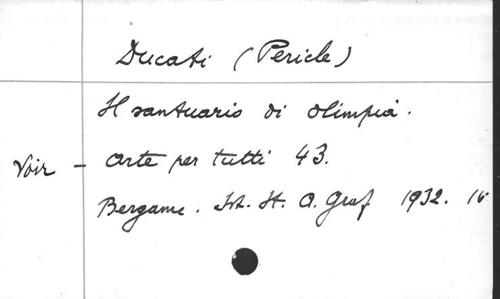 Ducati (Pericle)
Il santuario di Olimpia.
Voir - Arte per tutti 43.
Bergame. Ist. It. A. Graf 1932. 16